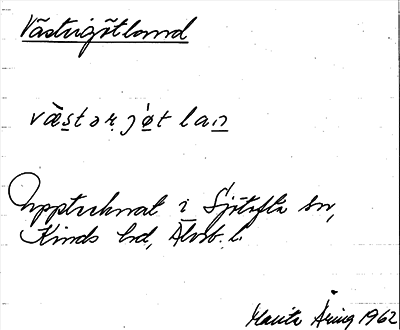 Västergötland
væ̀stərjö́t lan
Upptecknat i Sjötofta sn,
Kinds hd, Älvsb. l.
Marita Åring 1962